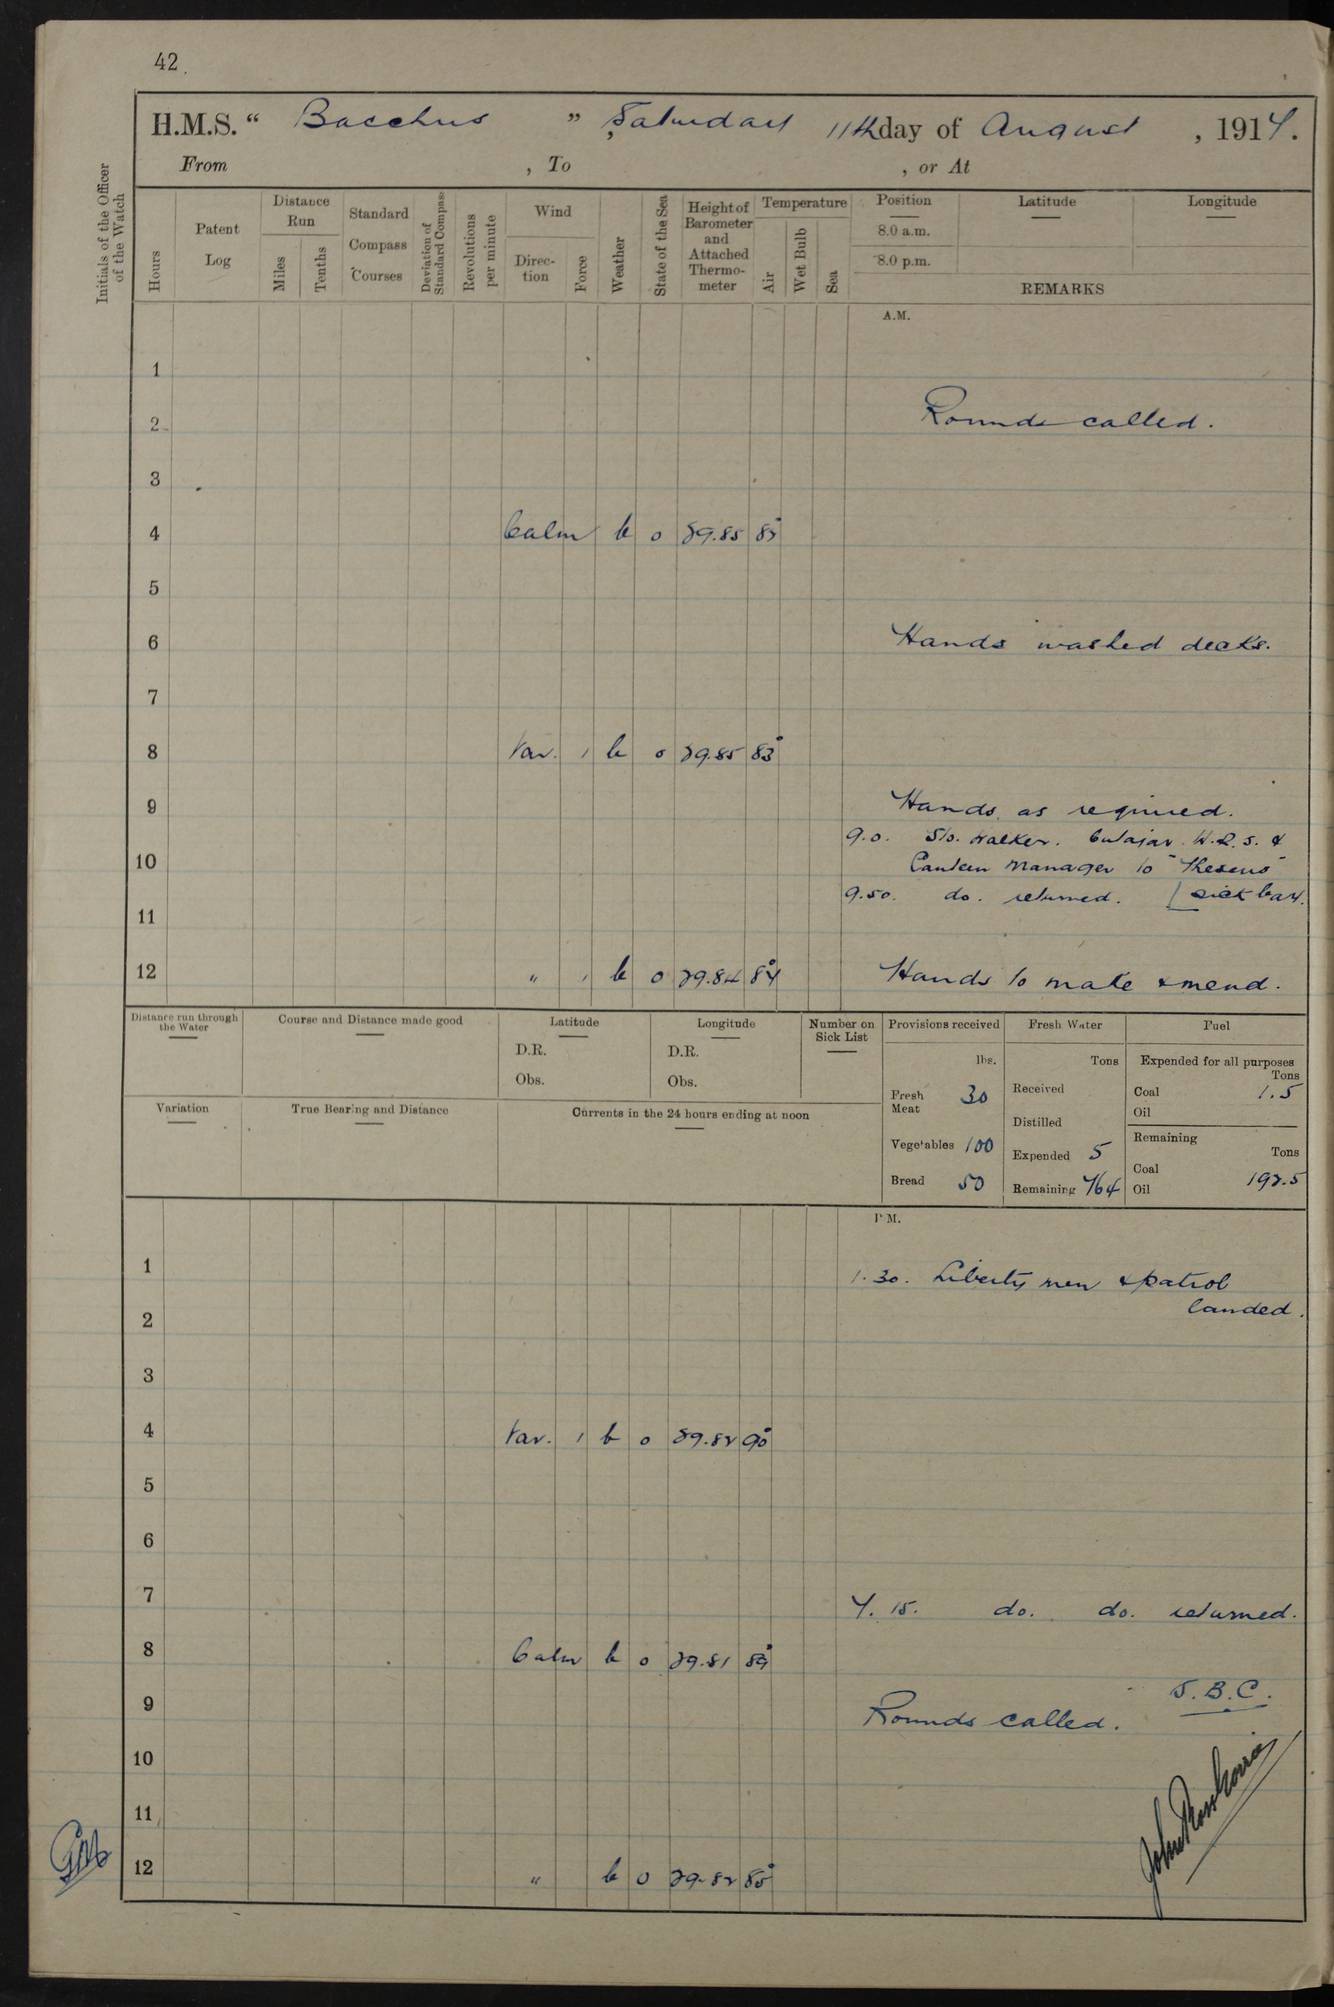 42
H.M.S. “ Bacchus ”, Saturday 11th day of August, 1917.
From , To , or At
Initials of the Officer of the Watch
Hours
Patent Log
Distance Run
Miles
Tenths
Standard Compass Courses
Deviation of Standard Compass
Revolutions per minute
Wind
Direction
Force
Weather
State of the Sea
Height of Barometer and Attached Thermometer
Temperature
Air
Wet Bulb
Sea
Position
8.0 a.m.
8.0 p.m.
Latitude
Longitude
REMARKS
A.M.
1
2 Rounds called.
3
4 Calm b 0 29.85
5
6 Hands washed decks.
7
8 Var. 1 b 0 29.85 83°
9 Hands as required.
9.0. Walker. Cutajar. &
10 Canteen Manager to "Theseus"
9.50. do. returned. [sick bay.
11
12 " 1 b 0 29.84 87° Hands to make & mend.
Distance run through the Water
Course and Distance made good
Latitude
D.R.
Obs.
Longitude
D.R.
Obs.
Number on Sick List
Variation
True Bearing and Distance
Currents in the 24 hours ending at noon
Provisions received
lbs.
Fresh Meat 30
Vegetables 100
Bread 50
Fresh Water
Tons
Received
Distilled
Expended 5
Remaining 764
Fuel
Expended for all purposes
Tons
Coal 1.5
Oil
Remaining
Tons
Coal
Oil 192.5
P.M.
1 1.30. Liberty men & patrol
landed.
2
3
4 Var. 1 b 0 29.82 90°
5
6
7 7.15. do. do. returned.
8 Calm b 0 29.81 89°
9 Rounds called. S.B.C.
10
11
12 " b 0 29.82 85°